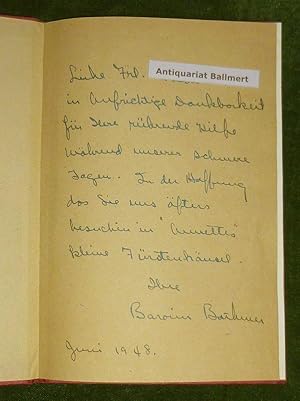 Antiquariat Ballmert
Liebe Frl.
in Aufrichtige Dankbarkeit
für Ihre rührende Hilfe
während unserer schwere
Tagen. In der Hoffnung
das Sie uns öfters
besuchen in "Annettes
kleine Fürstenhäusel.
Ihre
Baronin
Juni 1948.